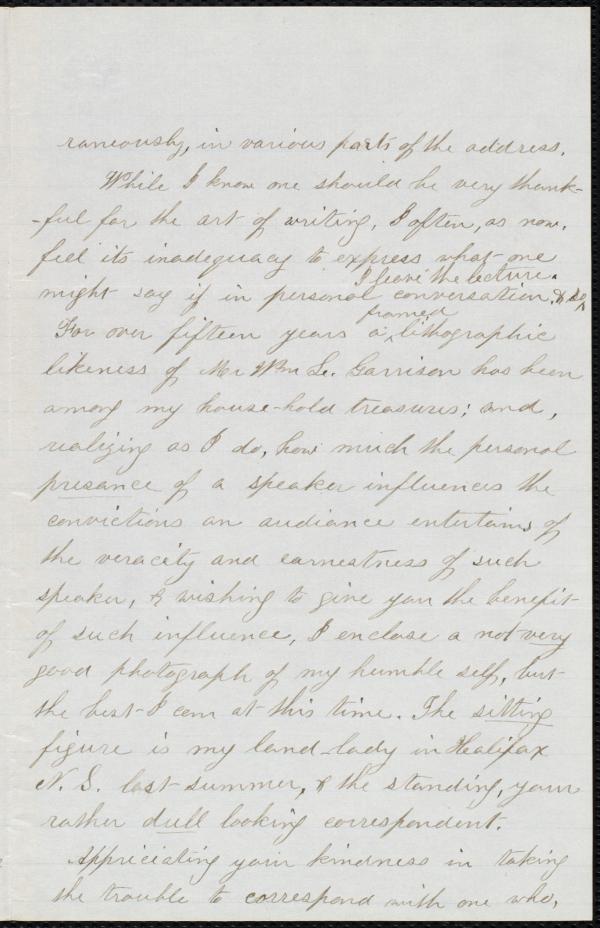 raneously, in various parts of the address.
While I know one should be very thank-
-ful for the art of writing, I often, as now,
feel its inadequacy to express what one
I leave the lecture.
might say if in personal conversation. & so
framed
For over fifteen years a lithographic
likeness of Mr Wm L. Garrison has been
among my house-hold treasures; and,
realizing as I do, how much the personal
presance of a speaker influences the
convictions an audiance entertains of
the veracity and earnestness of such
speaker, & wishing to give you the benefit
of such influence, I enclose a not very
good photograph of my humble self, but
the best I can at this time. The sitting
figure is my land-lady in Halifax
N. S. last summer, & the standing, your
rather dull looking correspondent.
Appriciating your kindness in taking
the trouble to correspond with one who,